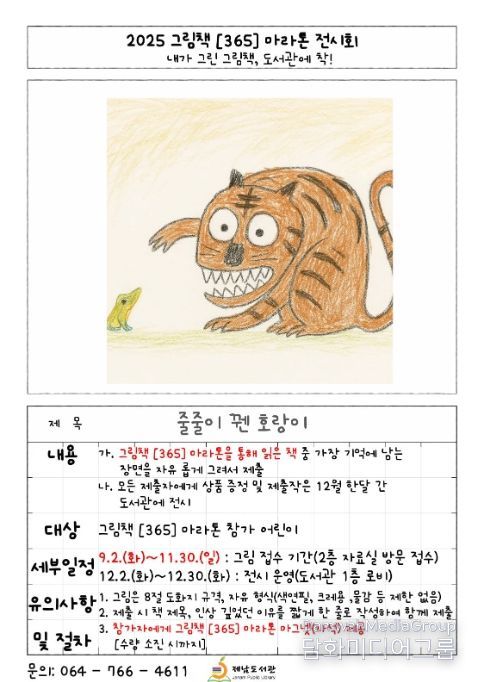 2025 그림책 [365] 마라톤 전시회
내가 그린 그림책, 도서관에 착!
제 목 줄줄이 꿴 호랑이
내용 가. 그림책 [365] 마라톤을 통해 읽은 책 중 가장 기억에 남는
장면을 자유 롭게 그려서 제출
나. 모든 제출자에게 상품 증정 및 제출작은 12월 한달 간
도서관에 전시
대상 그림책 [365] 마라톤 참가 어린이
세부일정 9.2.(화)~11.30.(일) : 그림 접수 기간(2층 자료실 방문 접수)
12.2.(화)~12.30.(화) : 전시 운영(도서관 1층 로비)
유의사항 및 절차
1. 그림은 8절 도화지 규격, 자유 형식(색연필, 크레용, 물감 등 제한 없음)
2. 제출 시 책 제목, 인상 깊었던 이유를 짧게 한 줄로 작성하여 함께 제출
3. 참가자에게 그림책 [365] 마라톤 마그넷(자석) 제공
[수량 소진 시까지]
문의: 064 - 766 - 4611
제남도서관
Jenam Public Library
MediaGroup
담화미디어그룹